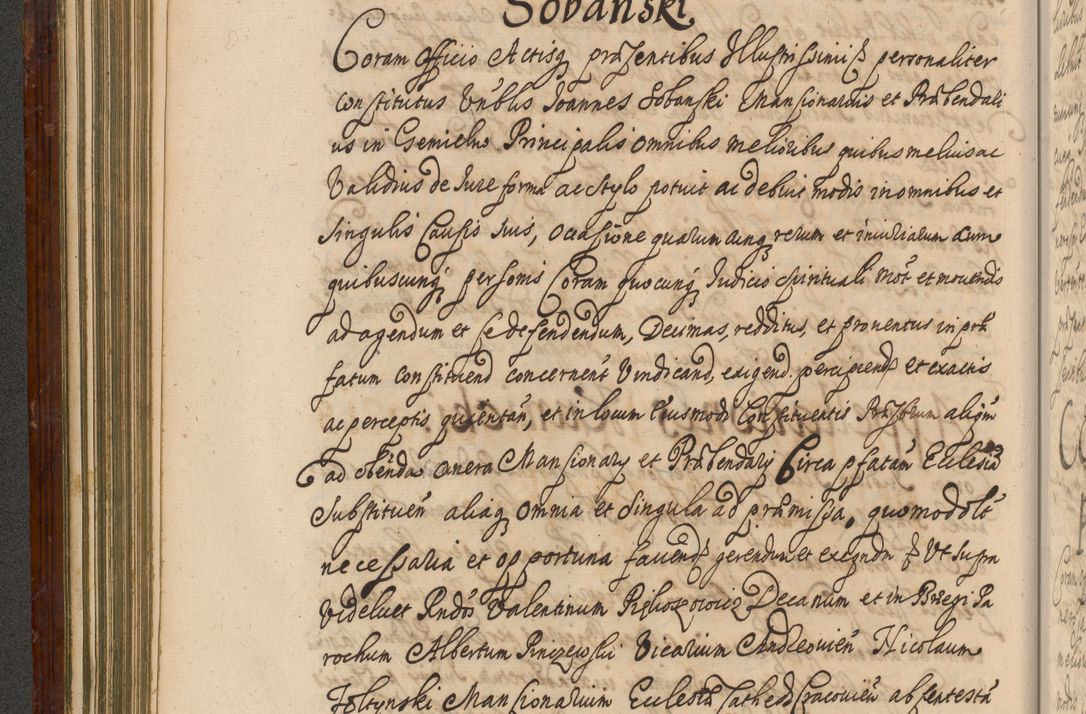 Sobański
Coram Officio Actisq præsentibus Illustrissimi personaliter
constitutus Vn̄blis Joannes Sobanski Mansionarius et Præbendari
us in Gemielno Principalis omnibus melioribus quibus melius ac
Validius de Jure forma ac stylo potuit ac debuit modis in omnibus et
singulis Causis suis, occasione quarumcunq rerum et iniuriarum cum
quibuscunq personis Coram quocunq Judicio spirituali mot et mouendis
ad agendum et se defendendum, Decimas, redditus, et prouentus in præ
fatum constituend concernent Vindicand, exigend. percipiend et exactis
ac perceptis quietan, et in locum eiusmodi Constituentis Presbrum aliqm
ad obēnda onera Mansionarÿ et Præbendarÿ Circa pfatam Ecclesiā
Substituen aliaq omnia et singula ad præmissa, quomodolt
necessaria et opportuna faciend gerendum et exeqndm Ut supra
Videlicet Rndos Valentinum Decanum et in Brzegi Pa
rochum Albertum Vicarium Andreouien Nicolaum
Foltynski Mansionarium Ecclesiæ Cathed Cracouien absentes tā